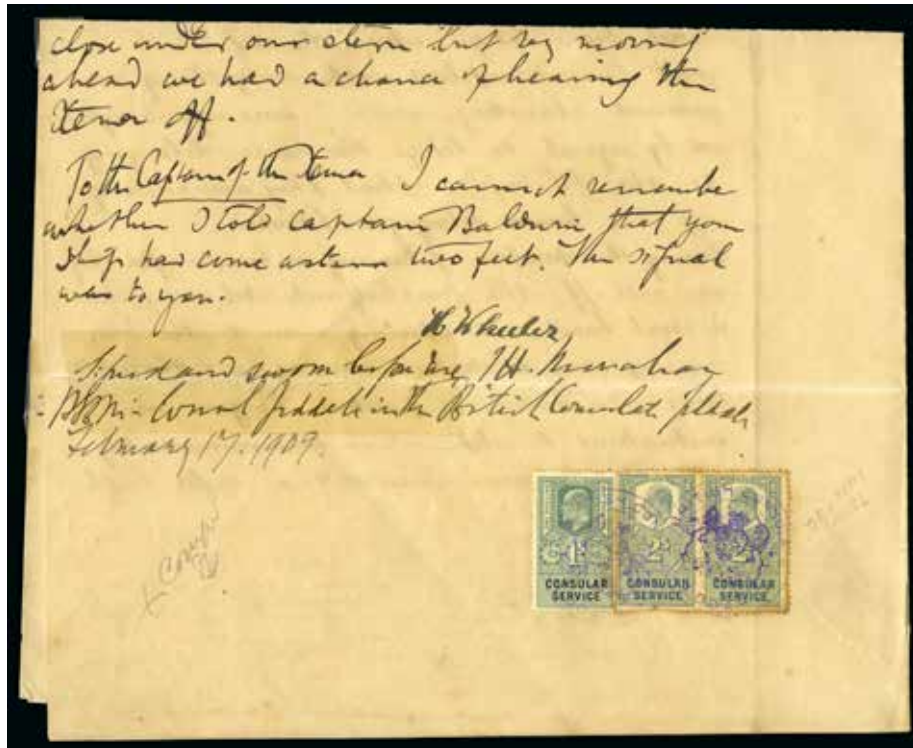 close under our stern but by moving
ahead we had a chance of heaving the
off.
To the Captain of the I cannot remember
whether I told Captain Baldwin that your
ship had come astern two feet. The signal
was to you.
H Wheeler
Signed and sworn before me, J H. Monahan
Consul in the British Consulate
February 17. 1909.
1
CONSULAR
SERVICE
2
CONSULAR
SERVICE
2
CONSULAR
SERVICE